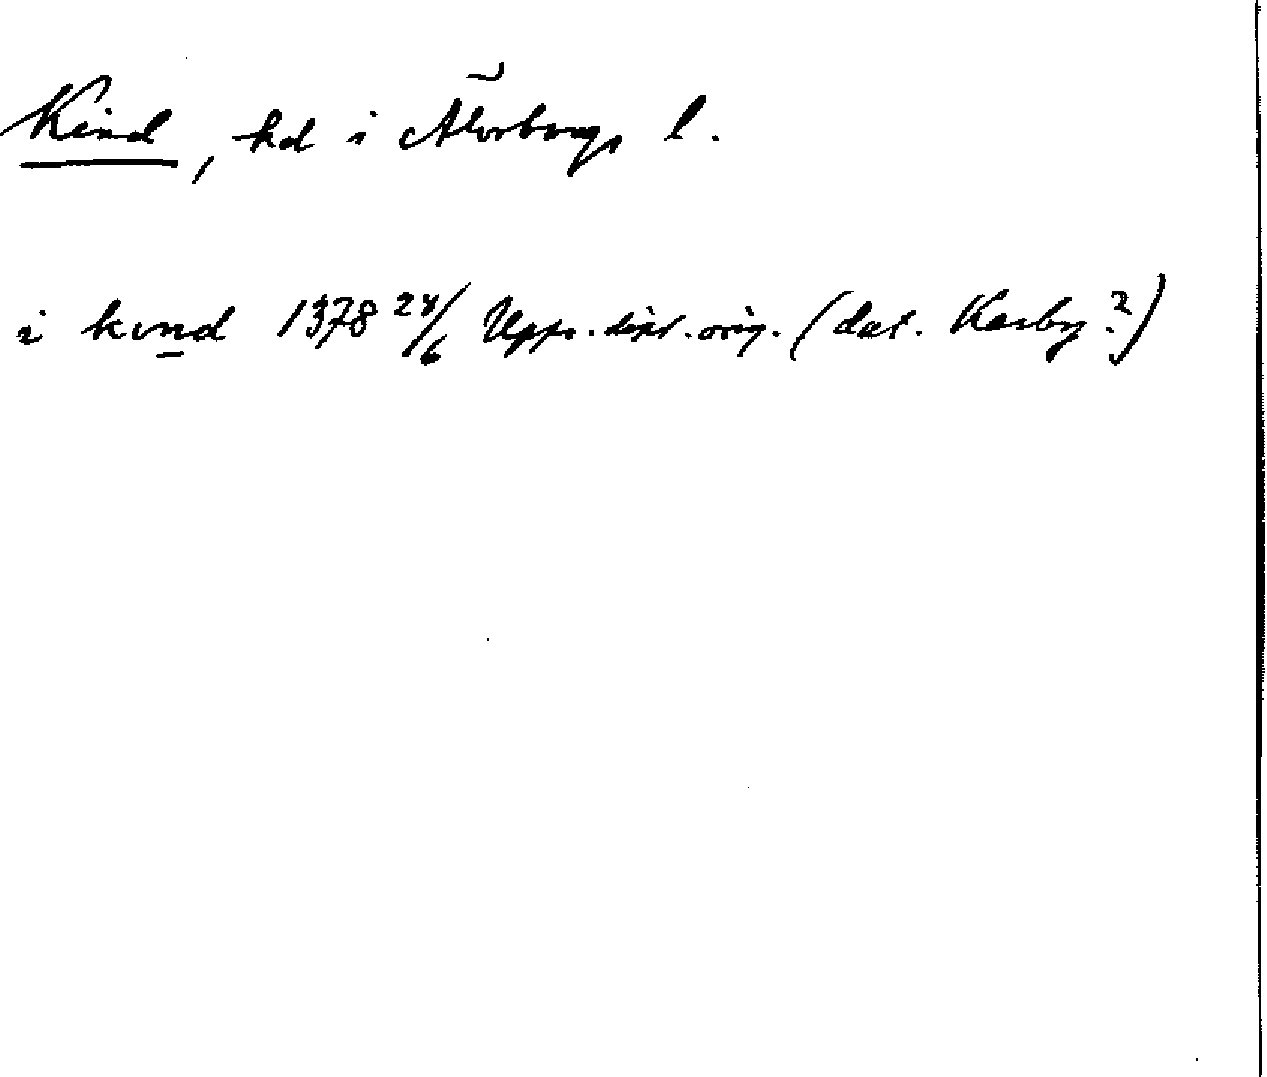 Kind, hd i Älvsborgs l.
i kind 1378 24/6 Upps. dipl. orig. (dat. Karby?)